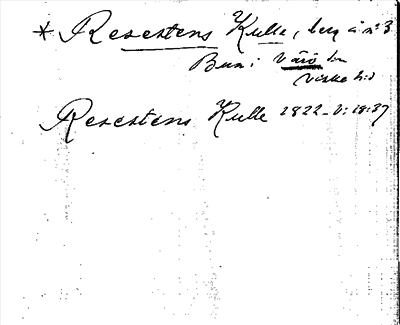 * Resestens Kulle, berg å nº 3
Bua i Värö sn
Viske hd
Resestens Kulle 1822 - V: 18:37